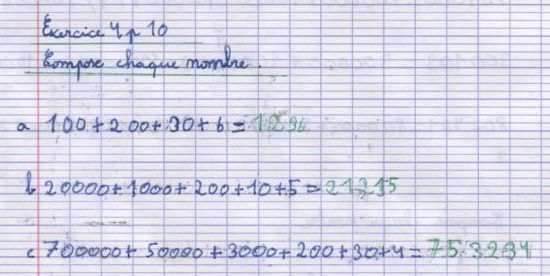 Exercice 4 p 10
Compose chaque nombre.
a 100+200+30+6=1236
b 20000+1000+200+10+5=21215
c 700000+50000+3000+200+30+4=753234